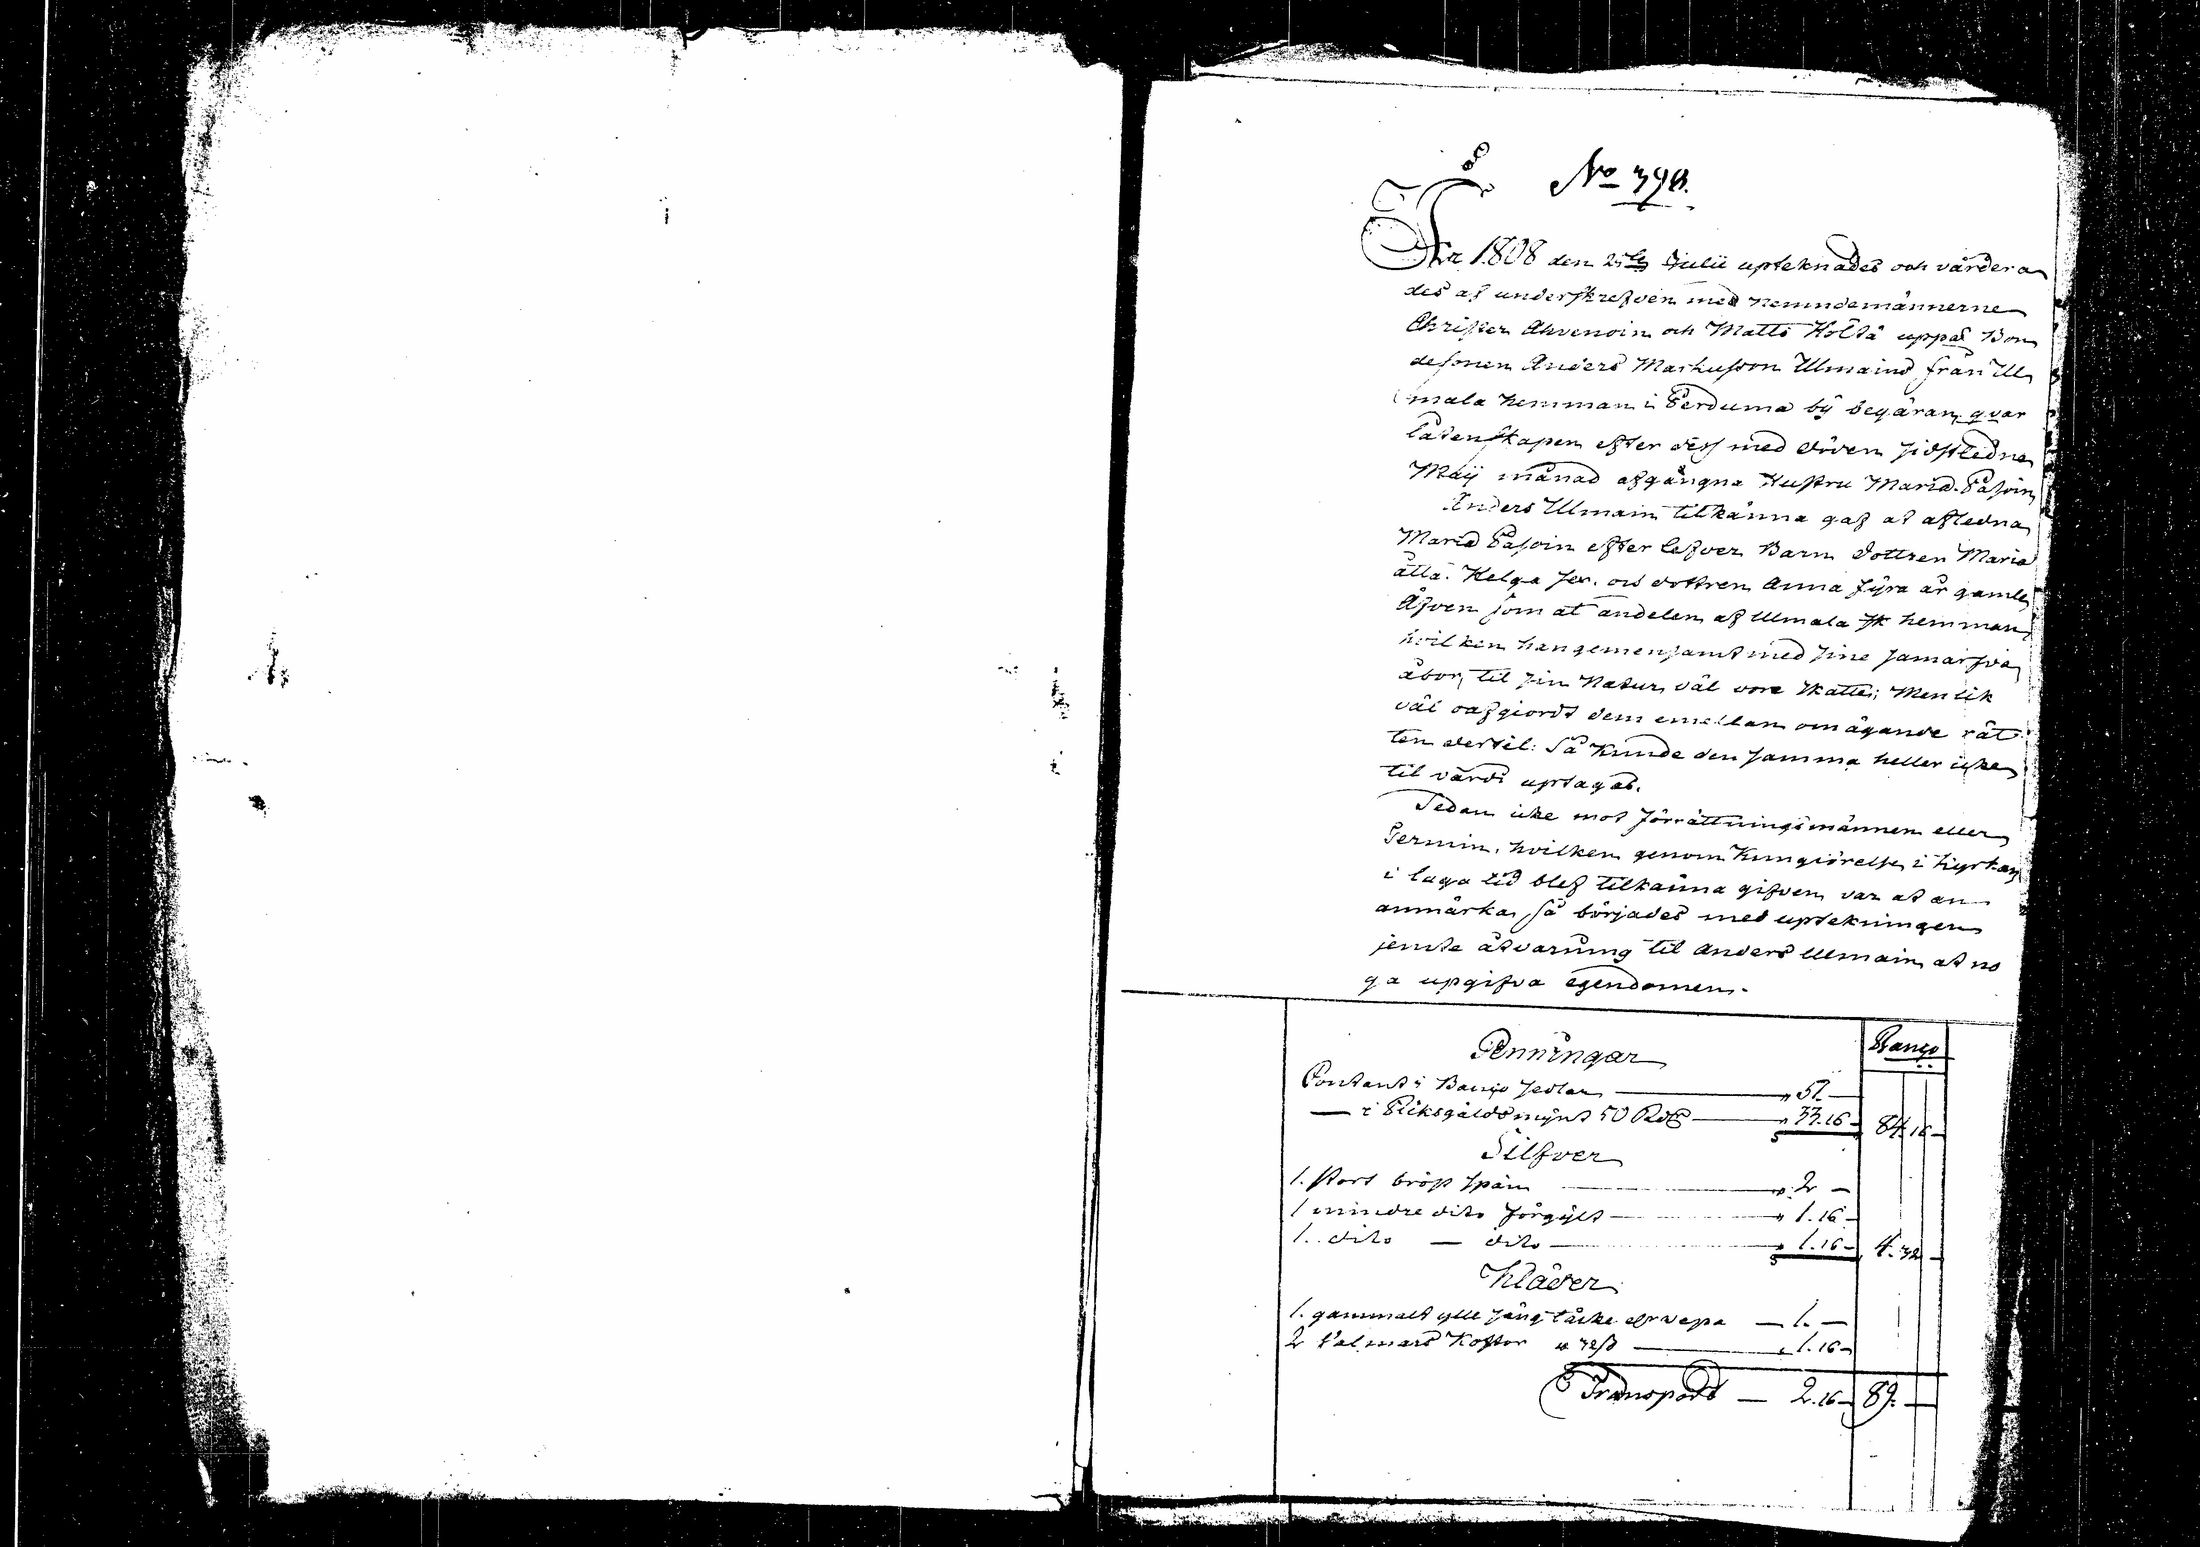 No 390.
År 1808 den 25te Julii upteknades och värdera
des af underskrefven med nemndemännerne
Christer Ahvenoin och Matts Höltä uppå Bon
desonen Anders Markusson Ulmains från Ul
mala hemman i Perduma bÿ begäran, qvar
låtenskapen efter dess med döden sidstledne
Maÿ månad afgångna Hustru Maria Pasoin
Anders Ulmain tilkänna gaf at afledna
Maria Pasoin efter lefver Barn dottren Maria
åtta. Helga sex. och dottren Anna fÿra år gamle,
Äfven som at andelen af Ulmala hemman,
hvilken han gemensamt med sine samarfva
åbor, til sin Natur väl vore Skatte; Men lik
väl oafgiordt dem emellan om ägande rät
ten dertil: Så kunde den samma heller icke
til värde uptagas.
Sedan icke mot förrättningsmännen eller
Termin, hvilken genom Kungiörelse i kyrkan
i laga tid blef tilkänna gifven var at an
anmärka, så börjades med uptekningen
jemte åtvarning til Anders Ulmain at no
ga upgifva egendomen.
Penningar
Banco
Contant i Banco sedlar — " 51. —
— i Riksgäldsmÿnt 50 Rd — " 33.16 — 84. 16 —
Silfver
1. stort bröst spän — " 2 —
1 mindre dito förgÿlt — " 1.16 —
1. dito — dito — " 1.16 — 4. 32 —
Kläder
1. gammalt ylle säng täcke — 1. —
2 Valmars Koftor — " 1.16 —
Transport — 2.16 — 89. —